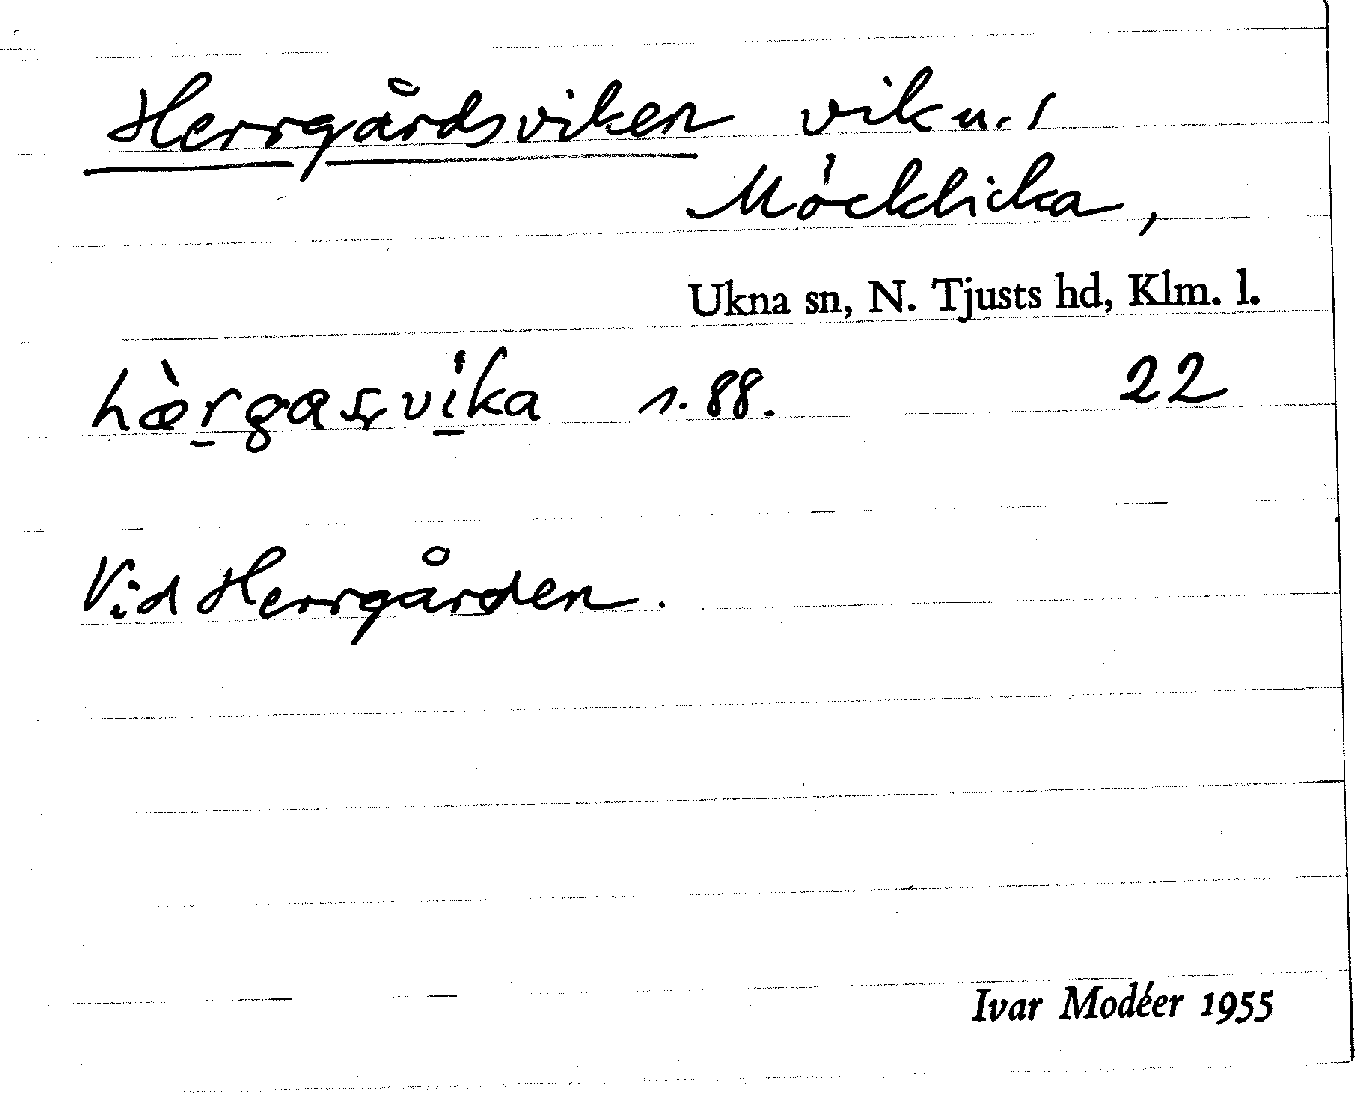 Herrgårdsviken vik u. 1
Möcklicka,
Ukna sn, N. Tjusts hd, Klm. l.
hæ̀rgasvika s. 88. 22
Vid Herrgården.
Ivar Modéer 1955